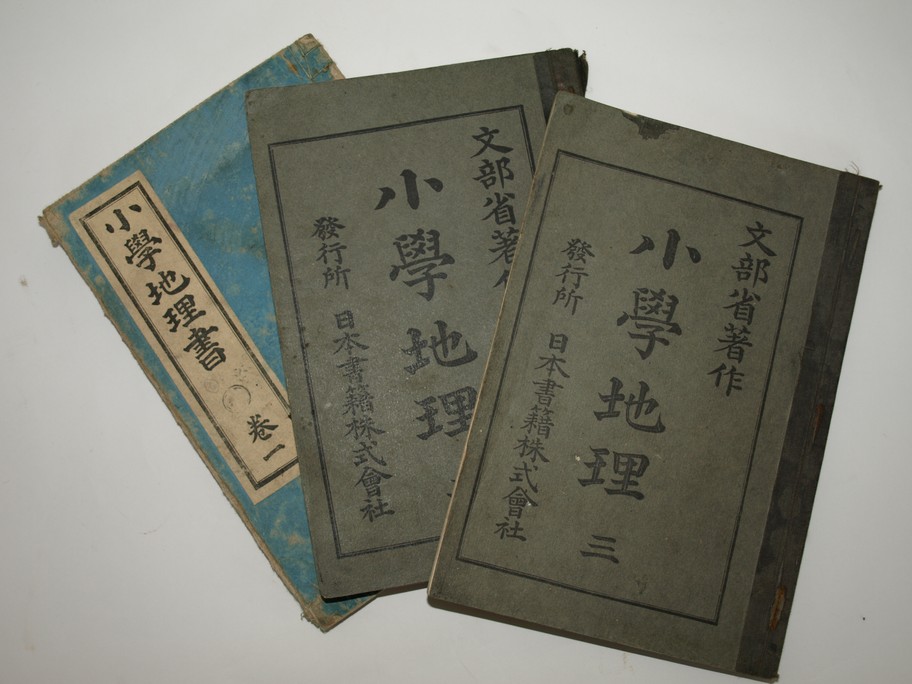 小學地理書
卷一
文部省著作
小學地理
發行所 日本書籍株式會社
文部省著作
小學地理 三
發行所 日本書籍株式會社